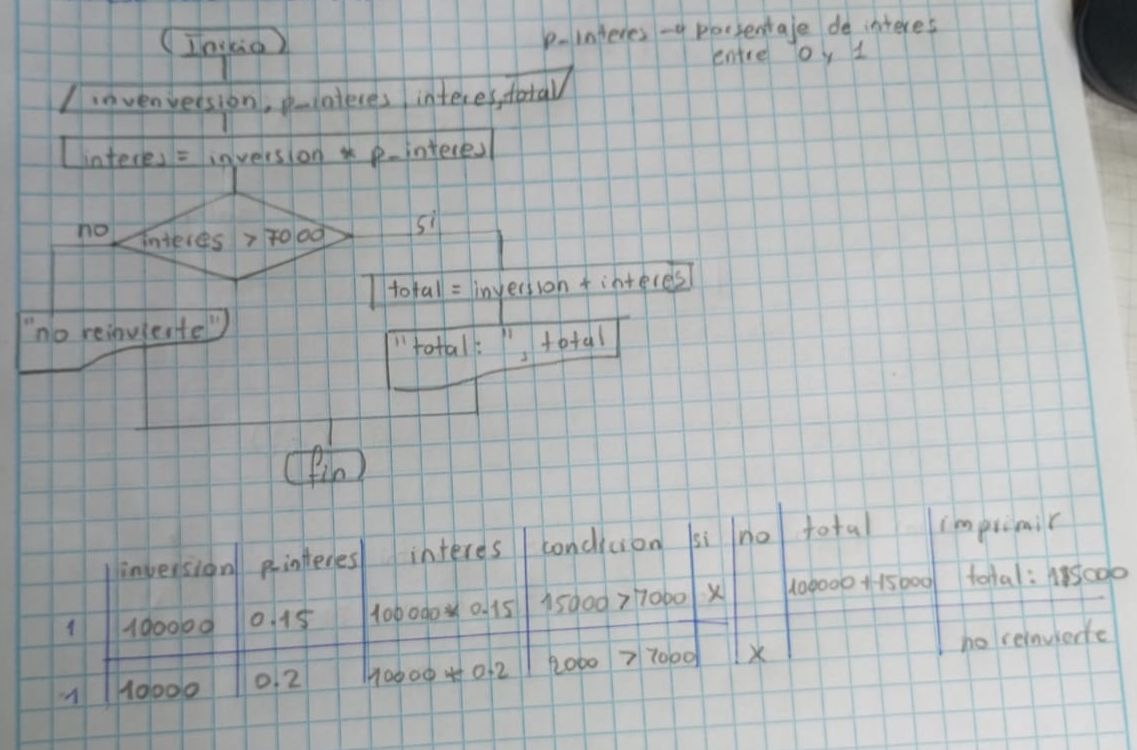 Inicio
p-interes → porsentaje de interes
entre 0 y 1
invenversion, p-interes, interes, total
interes = inversion * p-interes
interes > 7000
no
si
total = inversion + interes
"no reinvierte"
"total: ", total
fin
inversion p-interes interes condicion si no total imprimir
1 100000 0.15 100000 * 0.15 15000 > 7000 x 100000 + 15000 total: 115000
1 10000 0.2 10000 * 0.2 2000 > 7000 x no reinvierte